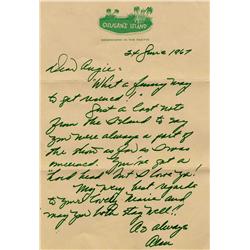 GILLIGAN'S ISLAND
24 June 1967
Dear Angie:
What a funny way
to get rescued!!
Just a last note
from the Island to say
you were always a part of
the show as far as I was
concerned. You've got a
"hard head" but I love ya!
My very best regards
to your lovely Marie and
may you both stay well!!
As always
Alan